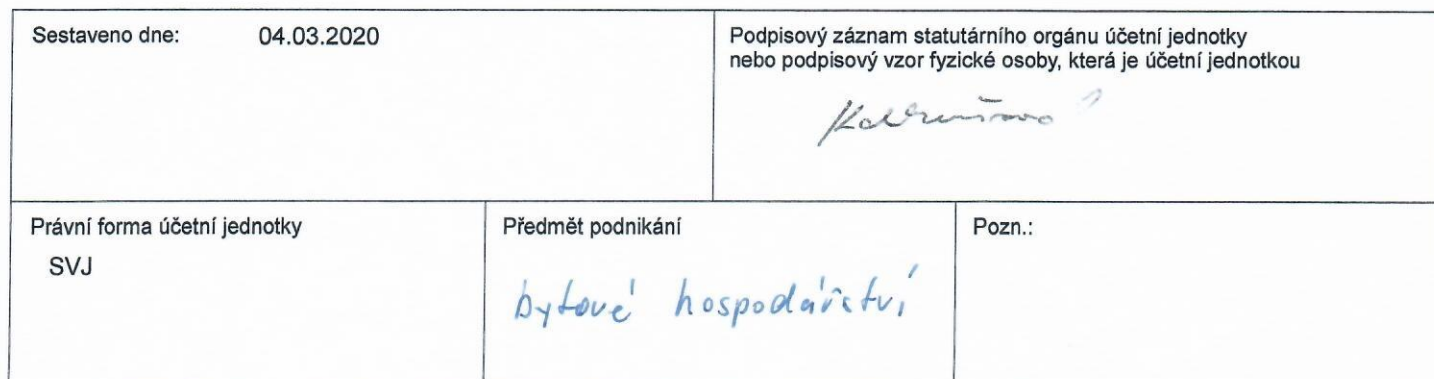 Sestaveno dne: 04.03.2020
Podpisový záznam statutárního orgánu účetní jednotky
nebo podpisový vzor fyzické osoby, která je účetní jednotkou
Právní forma účetní jednotky
SVJ
Předmět podnikání
bytové hospodářství
Pozn.: